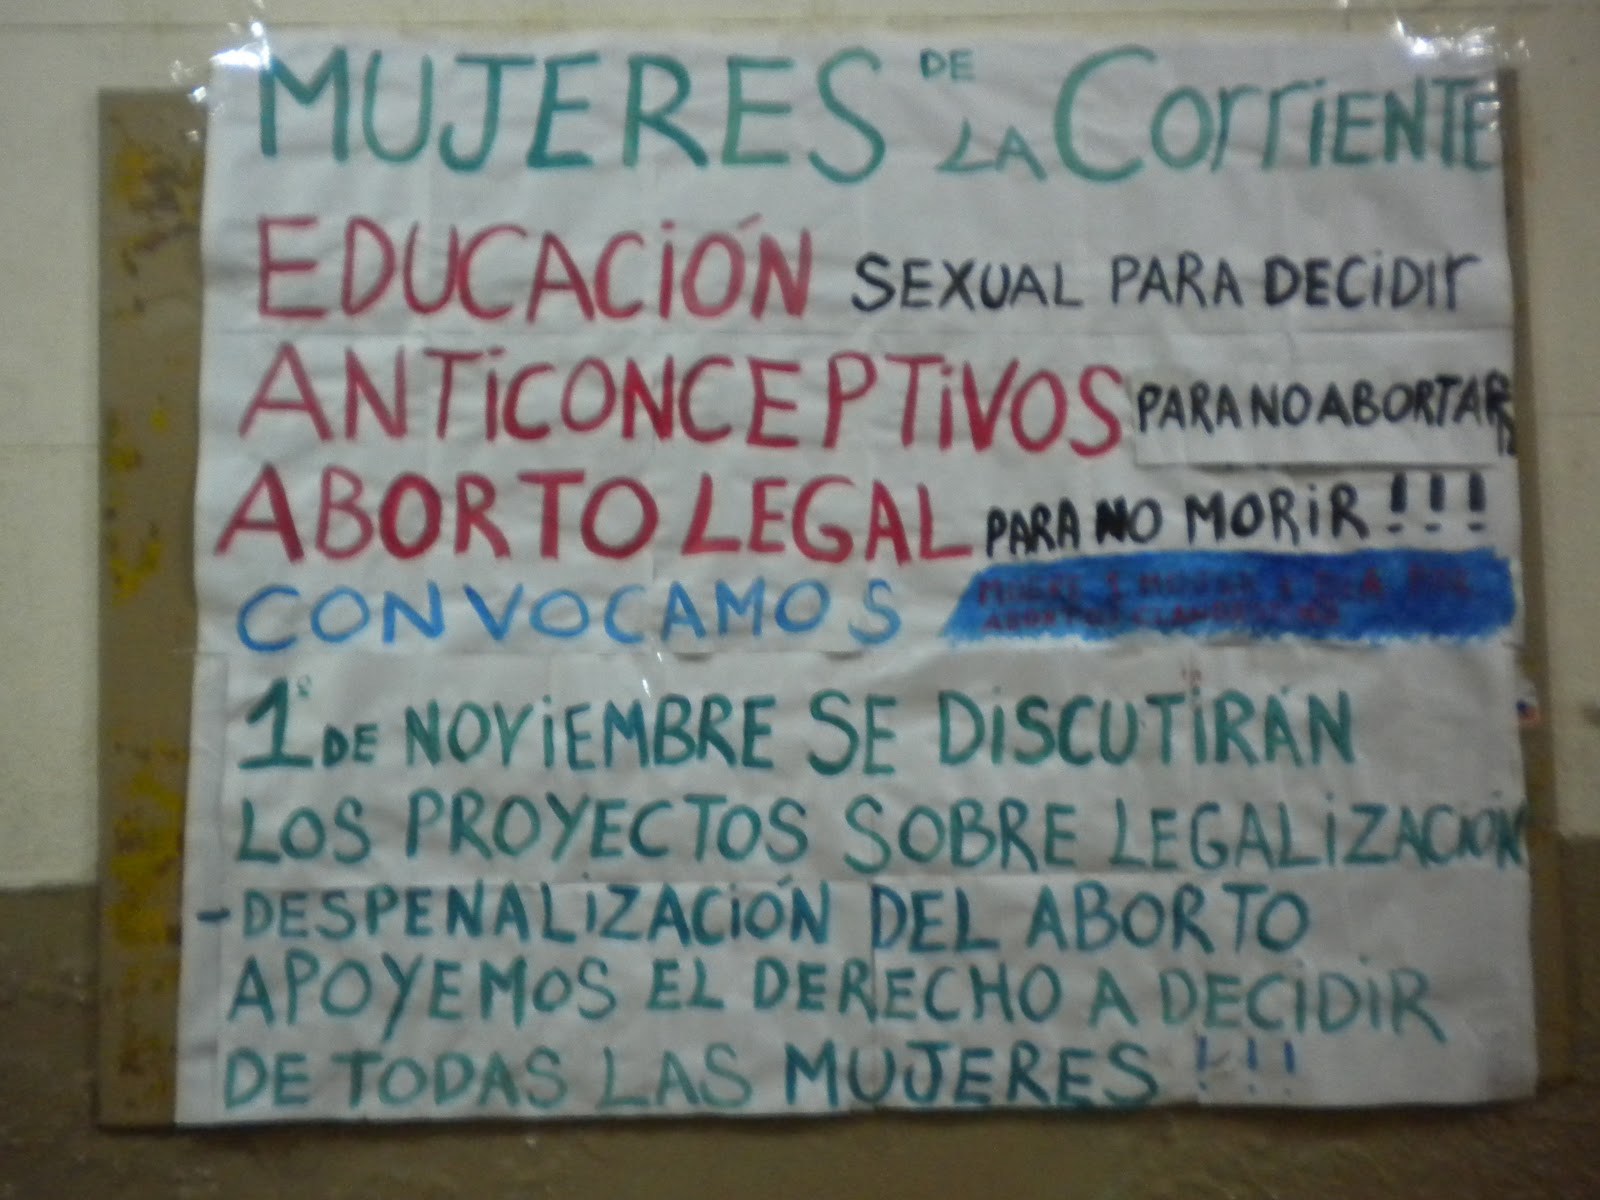 MUJERES DE LA CorriENTE
EDUCACiÓN SEXUAL PARA DECiDir
ANTiCONCEPTiVOS PARA NO ABORTAR
ABORTO LEGAL PARA NO MORiR !!!
CONVOCAMOS
ABORTOS CLANDESTINOS
1º DE NOViEMBRE SE DiSCUTIRÁN
LOS PROYECTOS SOBRE LEGALiZACIÓN
-DESPENALiZACiÓN DEL ABORTO
APOYEMOS EL DERECHO A DECiDiR
DE TODAS LAS MUJERES !!!